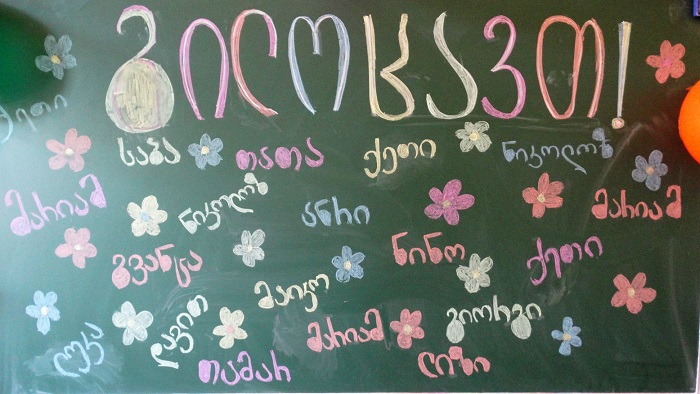 გილოცავთ!
ქეთი
საბა თათა ქეთი ნიკოლოზ
მარიამ ნიკოლოზ ანრი მარიამ
გვანცა ნინო ქეთი
მაიკო
ლუკა დავით მარიამ გიორგი
თამარ ლიზი